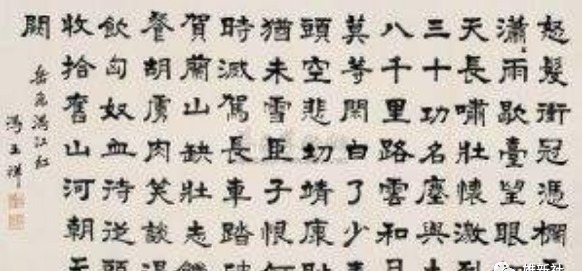 怒髮衝冠憑欄
瀟〻雨歇臺望眼
天長嘯壯懷激
三十功名塵與
八千里路雲和
莫等閑白了少
頭空悲切靖康
猶未雪臣子恨
時滅駕長車踏
賀蘭山缺壯志
餐胡虜肉笑談
飲匈奴血待從
收拾舊山河朝天
闕
岳飛滿江紅
馮玉祥